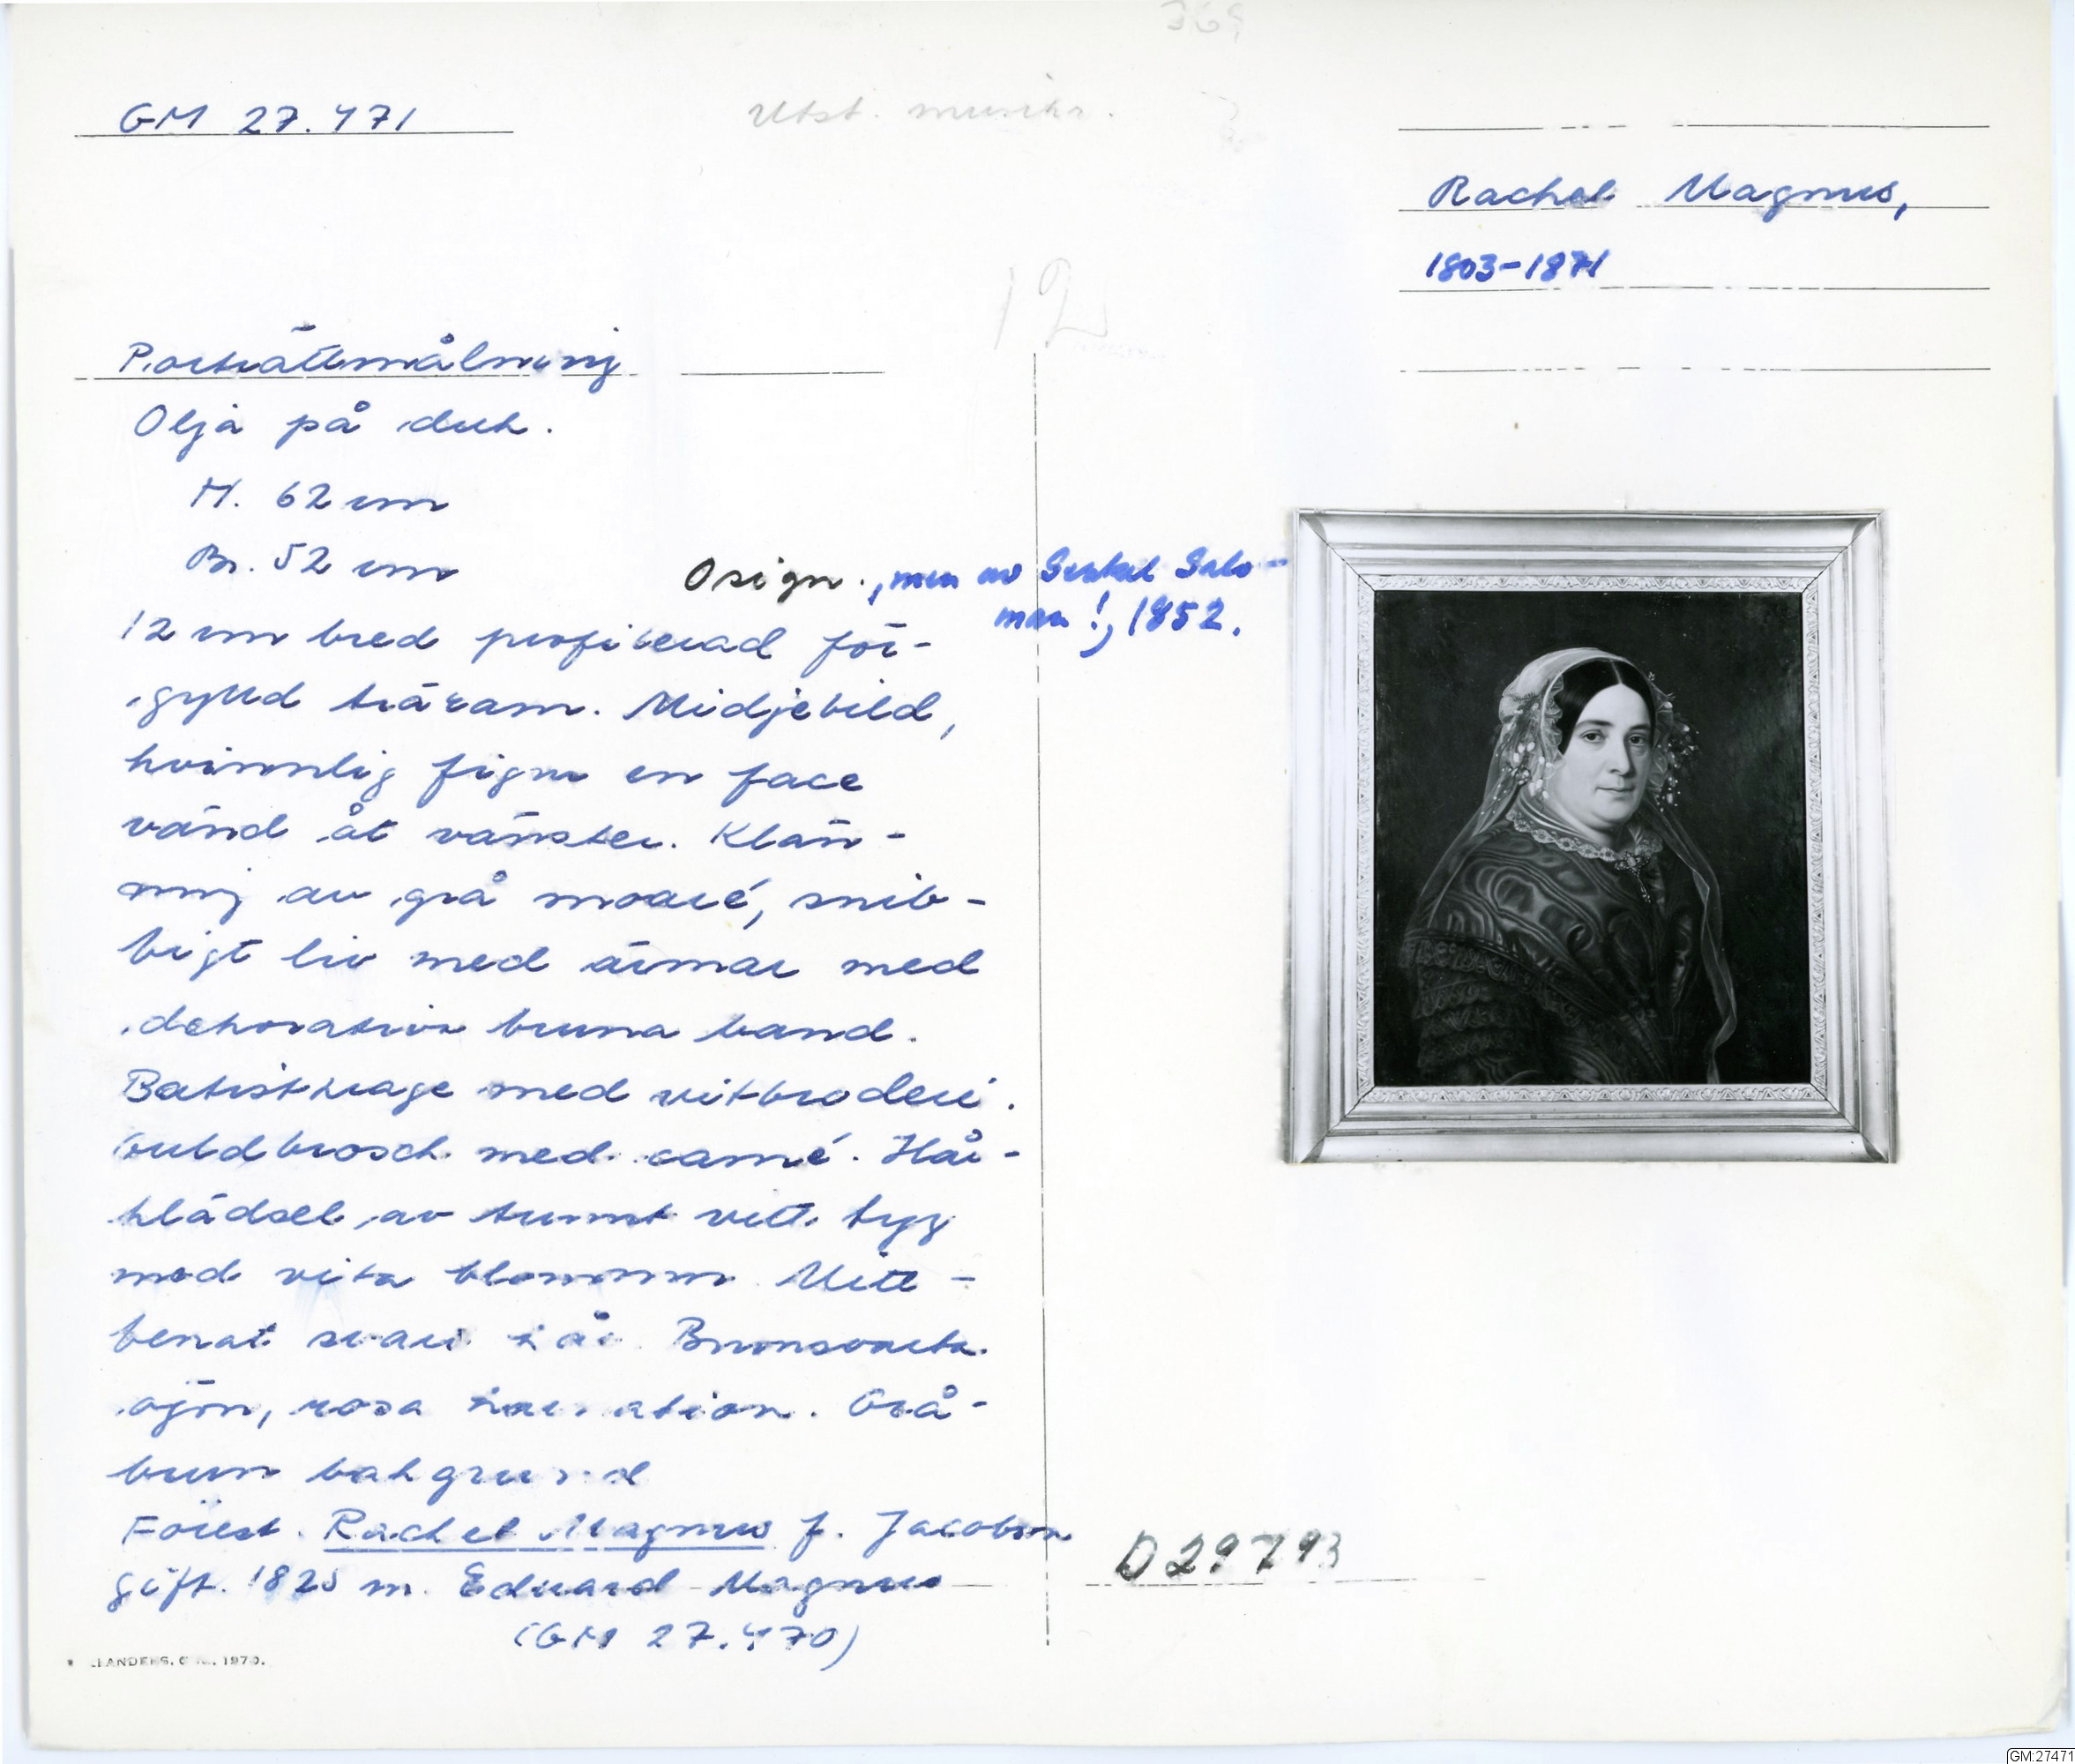 369
GM 27.471
Utst. musikr.
Rachel Magnus,
1803-1871
12
Porträttmålning
Olja på duk.
H. 62 cm
Br. 52 cm
Osign., men av Geskel Salo-
man!, 1852.
12 cm bred profilerad för-
gylld träram. Midjebild,
kvinnlig figur en face
vänd åt vänster. Klän-
ning av grå moaré, snib-
bigt liv med ärmar med
dekorativa bruna band.
Batistkrage med vitbroderi.
Guldbrosch med camé. Hår-
klädsel av tunnt vitt tyg
med vita blommor. Mitt-
benat svart hår. Brunsvarta
ögon, rosa karnation. Grå-
brun bakgrund
Förest. Rachel Magnus f. Jacobson
gift. 1825 m. Eduard Magnus
(GM 27.470)
D29793
1970.
GM:27471